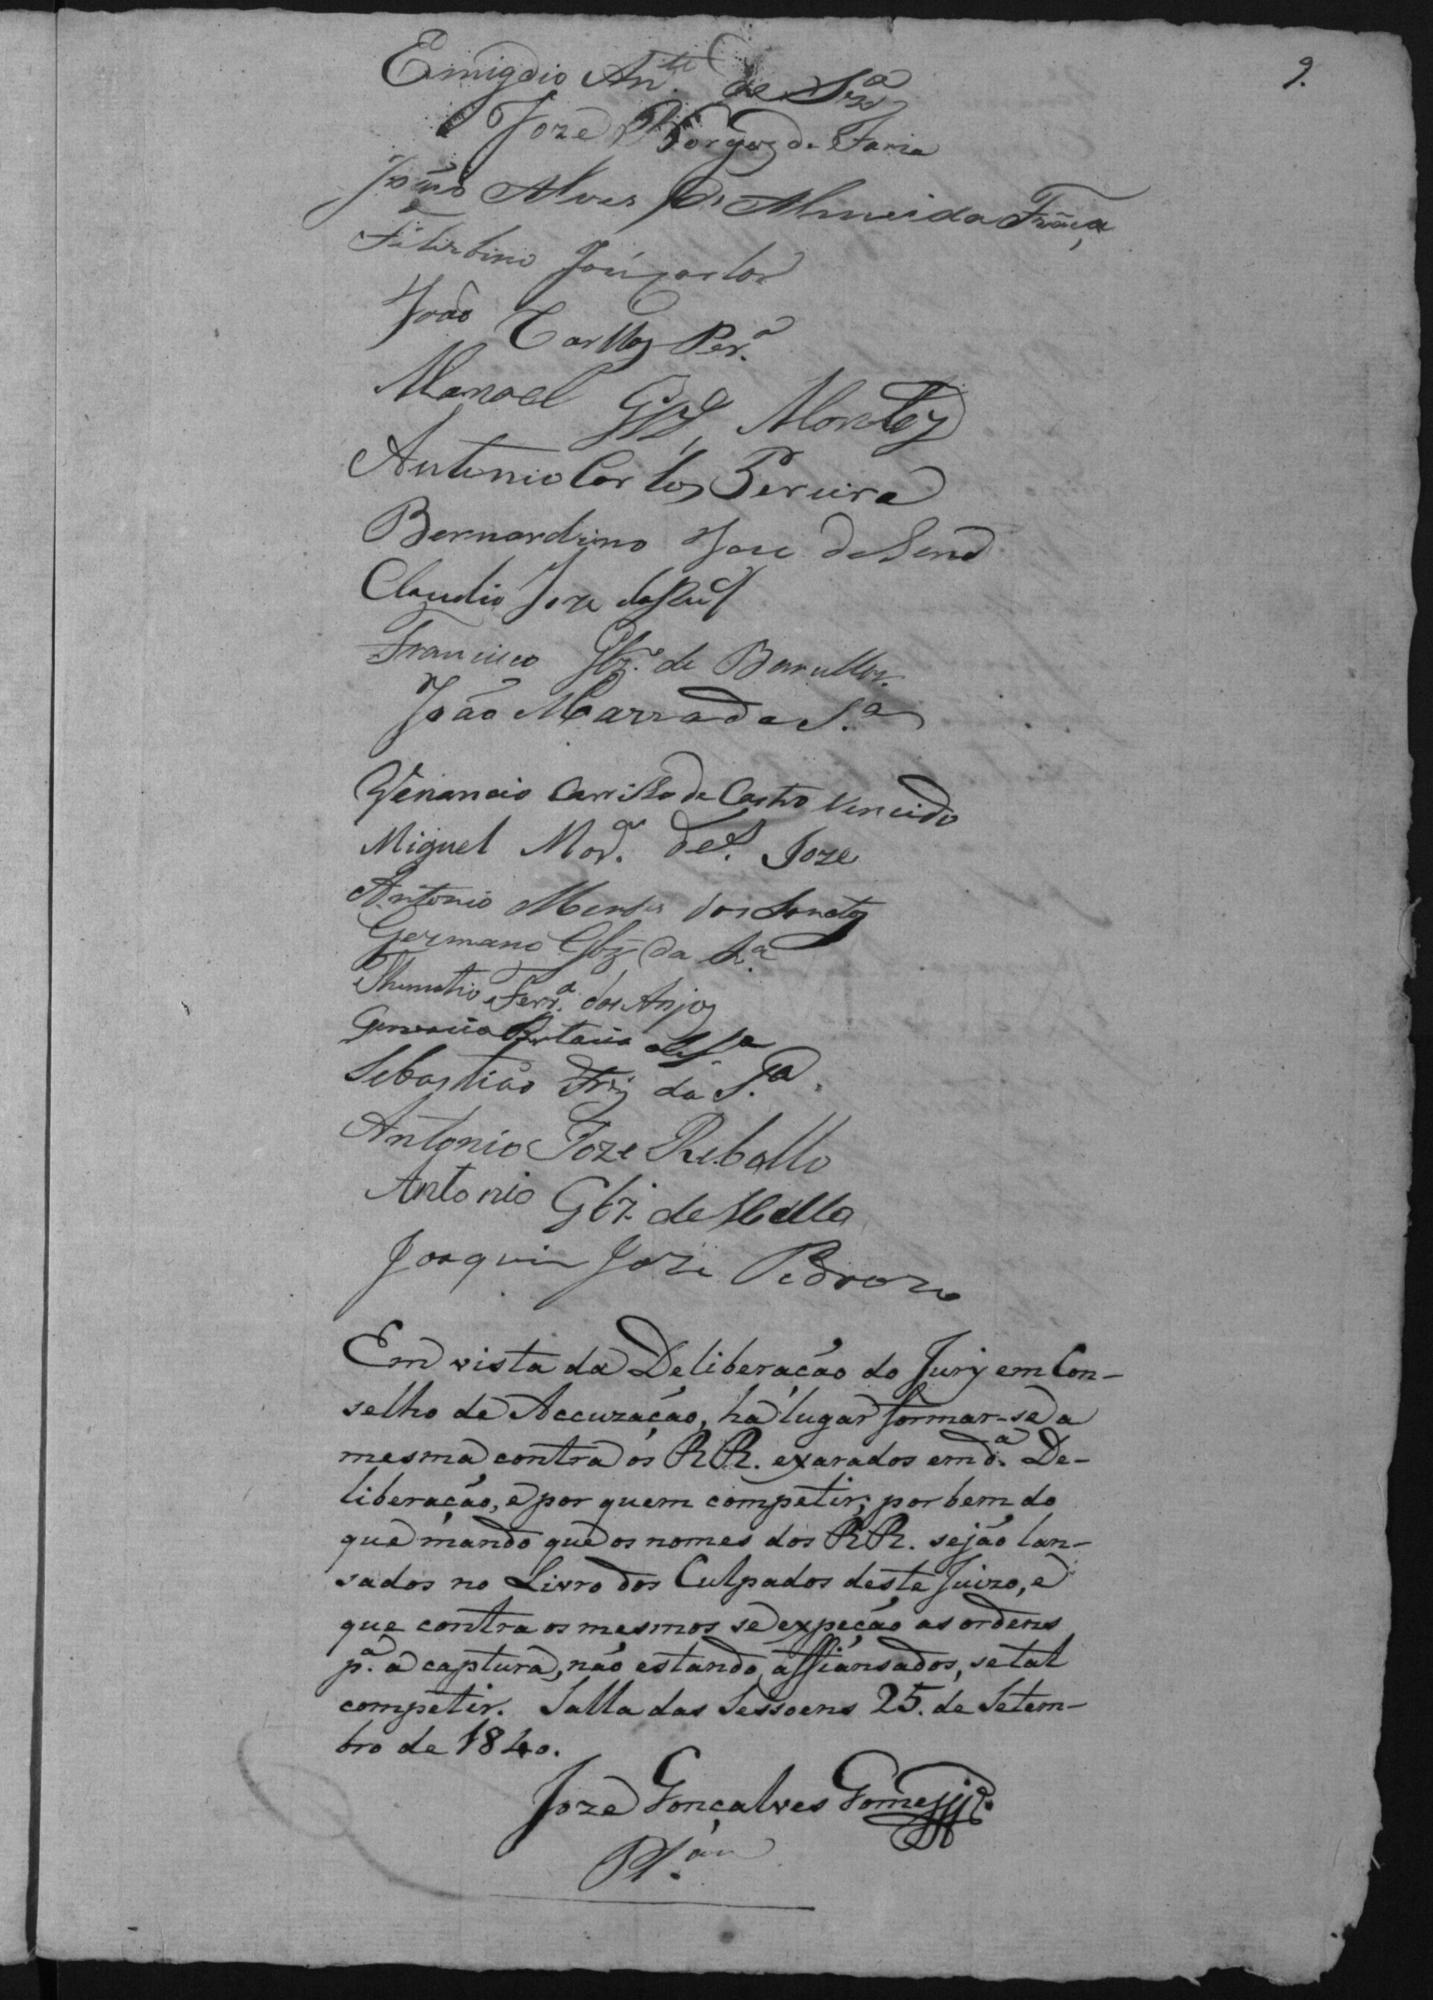 9.
Emigdio An.to de Sza
Joze Borges de Faria
João Alves de Almeida França
Filisbino José Carlos
João Carllos Per.a
Manoel Glz Montes
Antonio Carlos Pereira
Bernardino Joze de Sena
Claudio Joze da
Francisco Glz. de Barcellos.
João Marra da S.a
Venancio Carrilho de Castro Vencido
Miguel Mor.a de S. Joze
Antonio Mendes dos Santos
Germano Glz da S.a
Ferr.a dos Anjos
S.a
Sebastião Friz da S.a.
Antonio Joze Rebollo
Antonio Glz. de Mello
Joaquim Joze Pedrozo
Em vista da Deliberação do Jury em Con-
selho de Accuzação, há lugar formar-se a
mesma contra os RR. exarados em d.a De-
liberação, e por quem competir; por bem do
que mando que os nomes dos RR. sejão lan-
sados no Livro dos Culpados deste Juizo, e
que contra os mesmos se expeção as ordens
p.a a captura, não estando affiansados, se tal
competir. Salla das Sessoens 25. de Setem-
bro de 1840.
Joze Gonçalves Gomes